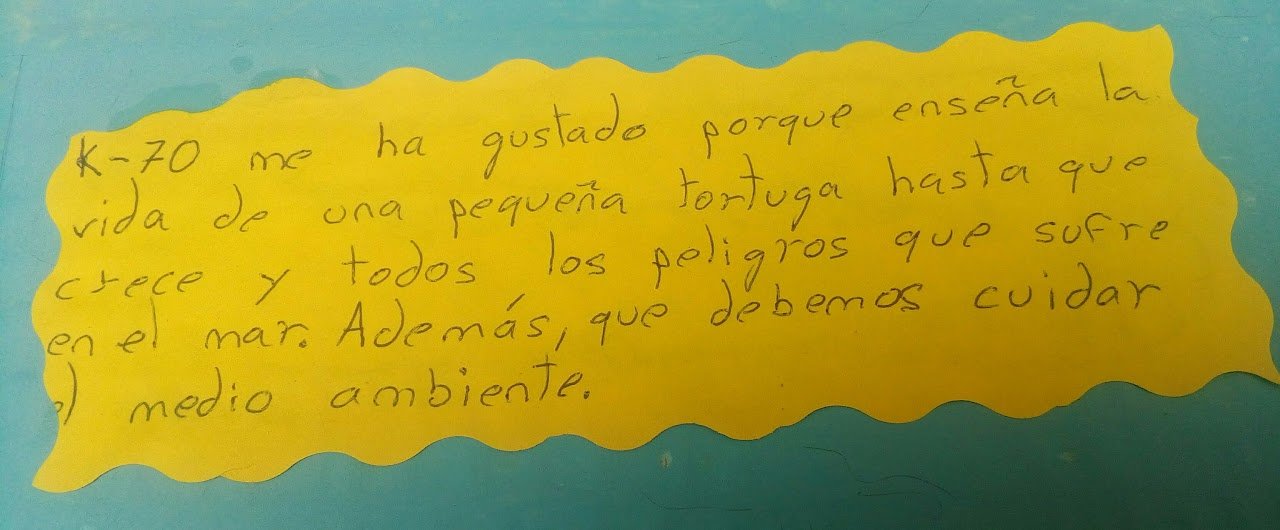 K-70 me ha gustado porque enseña la
vida de una pequeña tortuga hasta que
crece y todos los peligros que sufre
en el mar. Además, que debemos cuidar
el medio ambiente.